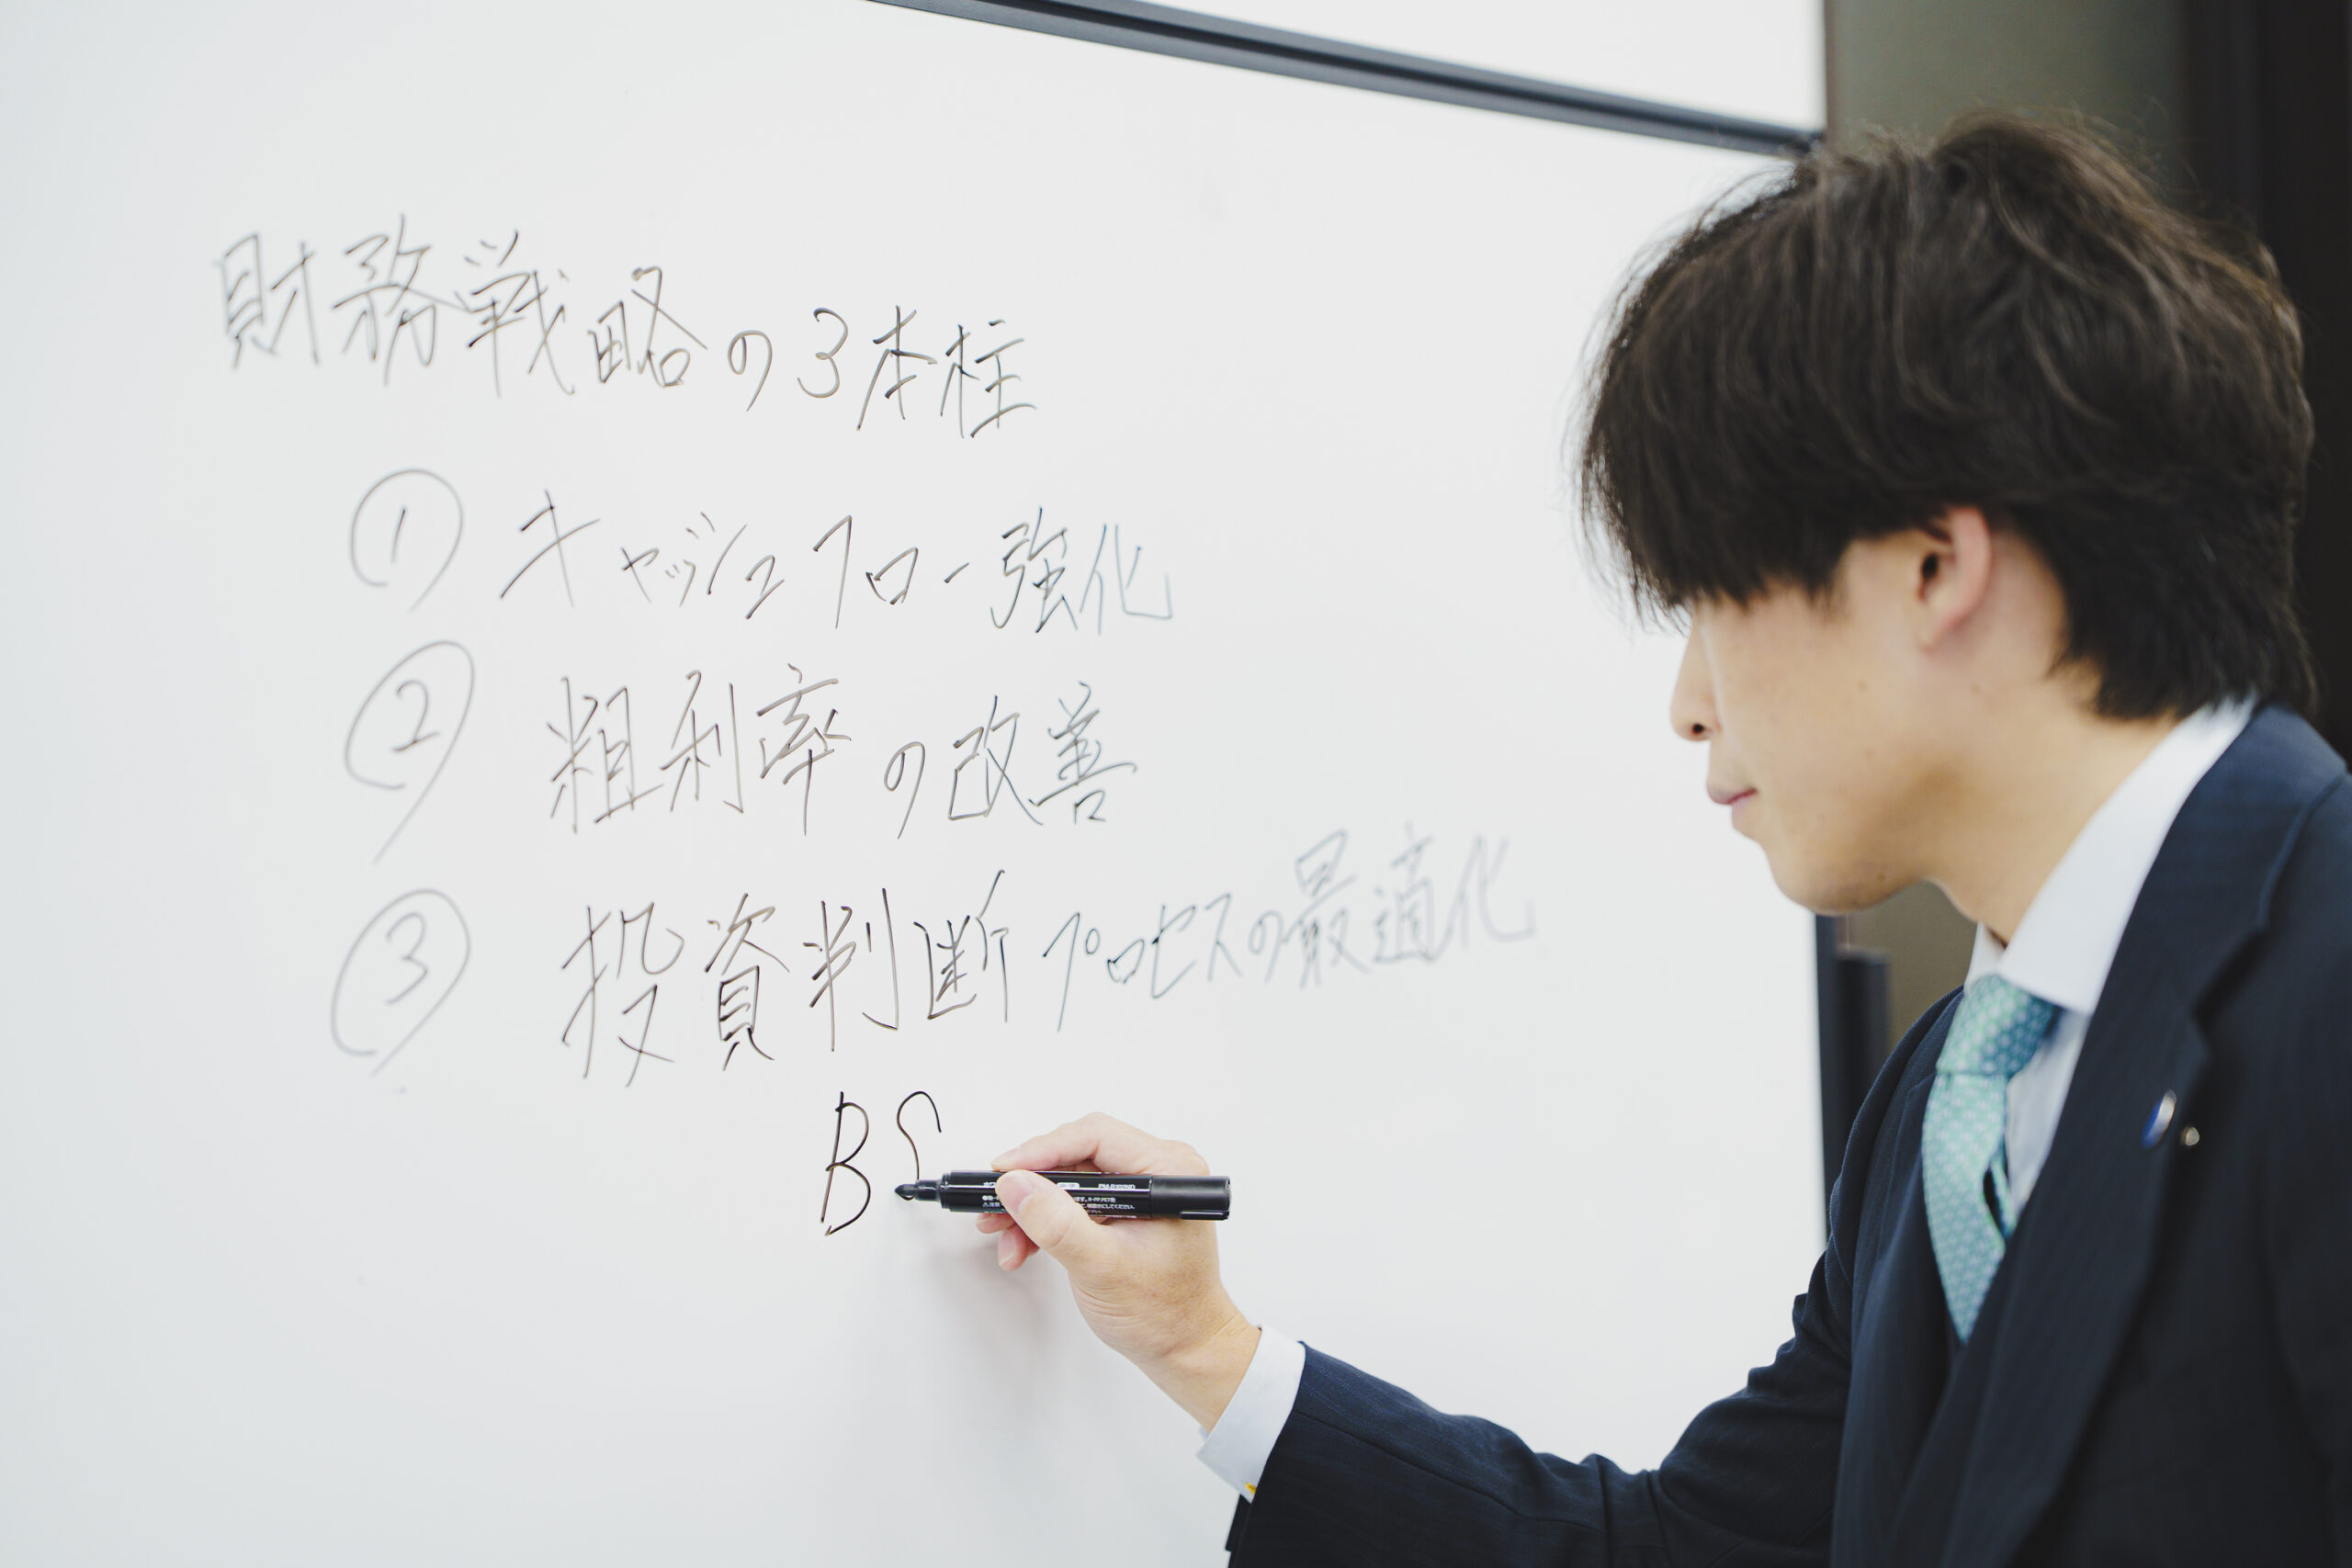 財務戦略の3本柱
① キャッシュフロー強化
② 粗利率の改善
③ 投資判断プロセスの最適化
BS